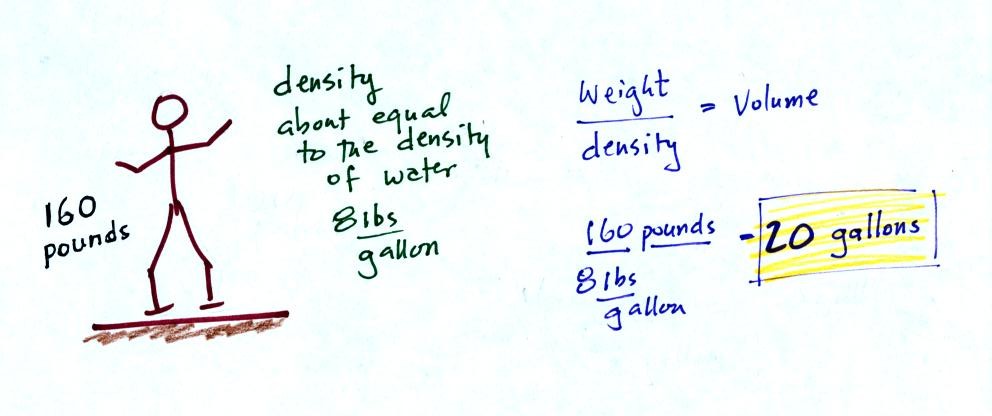 160
pounds
density
about equal
to the density
of water
8 lbs
gallon
Weight
density
= Volume
160 pounds
8 lbs
gallon
- 20 gallons